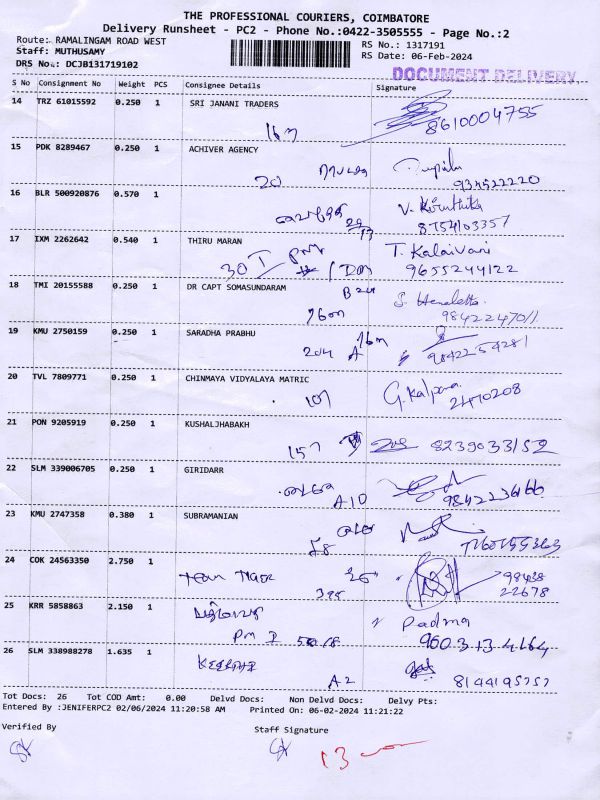 THE PROFESSIONAL COURIERS, COIMBATORE
Delivery Runsheet - PC2 - Phone No.:0422-3505555 - Page No.:2
Route: RAMALINGAM ROAD WEST
RS No.: 1317191
Staff: MUTHUSAMY
RS Date: 06-Feb-2024
DRS No: DCJB131719102
DOCUMENT DELIVERY
S No Consignment No Weight PCS Consignee Details Signature
14 TRZ 61015592 0.250 1 SRI JANANI TRADERS
8610004755
15 PDK 8289467 0.250 1 ACHIVER AGENCY
20
934522220
16 BLR 500920876 0.570 1
V. Kiruthika
8754103357
17 IXM 2262642 0.540 1 THIRU MARAN
T. Kalaivani
30 I
9655244122
18 TMI 20155588 0.250 1 DR CAPT SOMASUNDARAM
19 KMU 2750159 0.250 1 SARADHA PRABHU
204 A
9842254281
20 TVL 7809771 0.250 1 CHINMAYA VIDYALAYA MATRIC
107
G. Kalpana
2470208
21 PON 9205919 0.250 1 KUSHALJHABAKH
157
8239033152
22 SLM 339006705 0.250 1 GIRIDARR
A10
9842236166
23 KMU 2747358 0.380 1 SUBRAMANIAN
58
24 COK 24563350 2.750 1
Team Tiger
98438
22678
25 KRR 5858863 2.150 1
Padma
960 3134164
26 SLM 338988278 1.635 1
A2
Tot Docs: 26 Tot COD Amt: 0.00 Delvd Docs: Non Delvd Docs: Delvy Pts:
Entered By :JENIFERPC2 02/06/2024 11:20:58 AM Printed On: 06-02-2024 11:21:22
Verified By Staff Signature